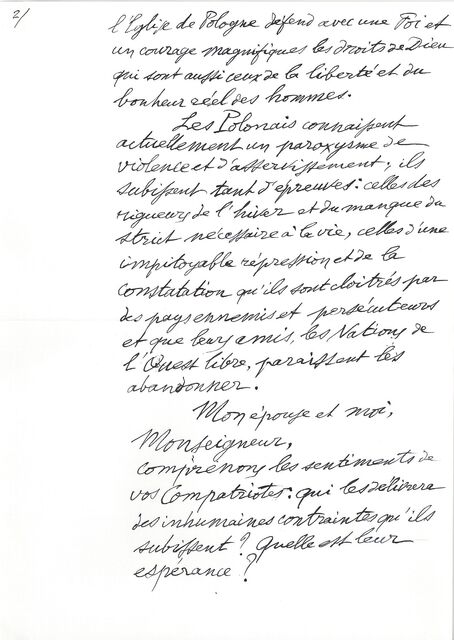 2/
l'Eglise de Pologne défend avec une Foi et
un courage magnifiques les droits de Dieu
qui sont aussi ceux de la liberté et du
bonheur réel des hommes.
Les Polonais connaissent
actuellement un paroxysme de
violence et d'asservissement ; ils
subissent tant d'épreuves : celles des
rigueurs de l'hiver et du manque du
strict nécessaire à la vie, celles d'une
impitoyable répression et de la
constatation qu'ils sont cloitrés par
des pays ennemis et persécuteurs
et que leurs amis, les Nations de
l'Ouest libre, paraissent les
abandonner.
Mon épouse et moi,
Monseigneur,
comprenons les sentiments de
vos Compatriotes : qui les délivrera
des inhumaines contraintes qu'ils
subissent ? Quelle est leur
espérance ?